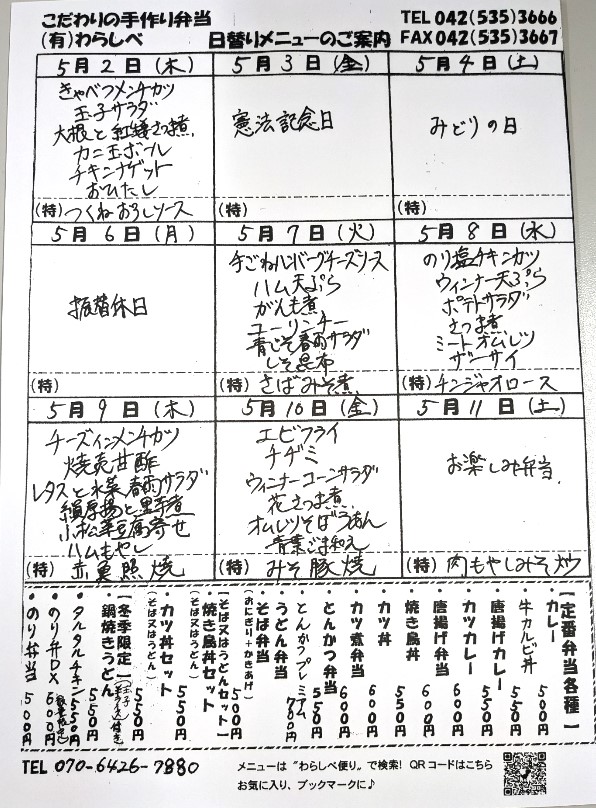 こだわりの手作り弁当
(有)わらしべ 日替りメニューのご案内
TEL 042(535)3666
FAX 042(535)3667
5月2日(木)
きゃべつメンチカツ
玉子サラダ
大根と紅蟷さつま煮
カニ玉ボール
チキンナゲット
おひたし
(特)つくねおろしソース
5月3日(金)
憲法記念日
(特)
5月4日(土)
みどりの日
(特)
5月6日(月)
振替休日
(特)
5月7日(火)
手ごねハンバーグチーズソース
ハム天ぷら
がんも煮
コーリンチー
青じそ春雨サラダ
しそ昆布
(特)さばみそ煮
5月8日(水)
のり塩チキンカツ
ウィンナー天ぷら
ポテトサラダ
さつま煮
ミートオムレツ
ザーサイ
(特)チンジャオロース
5月9日(木)
チーズインメンチカツ
焼売甘酢
レタスと水菜春雨サラダ
絹厚揚と里芋煮
小松菜豆腐寄せ
ハムもやし
(特)赤魚照焼
5月10日(金)
エビフライ
チヂミ
ウィンナーコーンサラダ
花さつま煮
オムレツそぼろあん
青菜ごま和え
(特)みそ豚焼
5月11日(土)
お楽しみ弁当
(特)肉もやしみそ炒
【定番弁当各種】
・カレー 500円
・牛カルビ丼 550円
・唐揚げカレー 550円
・カツカレー 600円
・唐揚げ弁当 600円
・焼き鳥丼 550円
・カツ丼 600円
・カツ煮弁当 600円
・とんかつ弁当 550円
・とんかつプレミアム 700円
・うどん弁当
・そば弁当 500円
(おにぎり+かきあげ)
【そば又はうどんセット】
・焼き鳥丼セット 550円
(そば又はうどん)
・カツ丼セット 550円
(そば又はうどん)
【冬季限定】
・鍋焼きうどん 550円
・タルタルチキン 550円
・のり弁DX 600円
・のり弁当 500円
TEL 070-6426-7880
メニューは“わらしべ便り”で検索! QRコードはこちら
お気に入り、ブックマークに♪